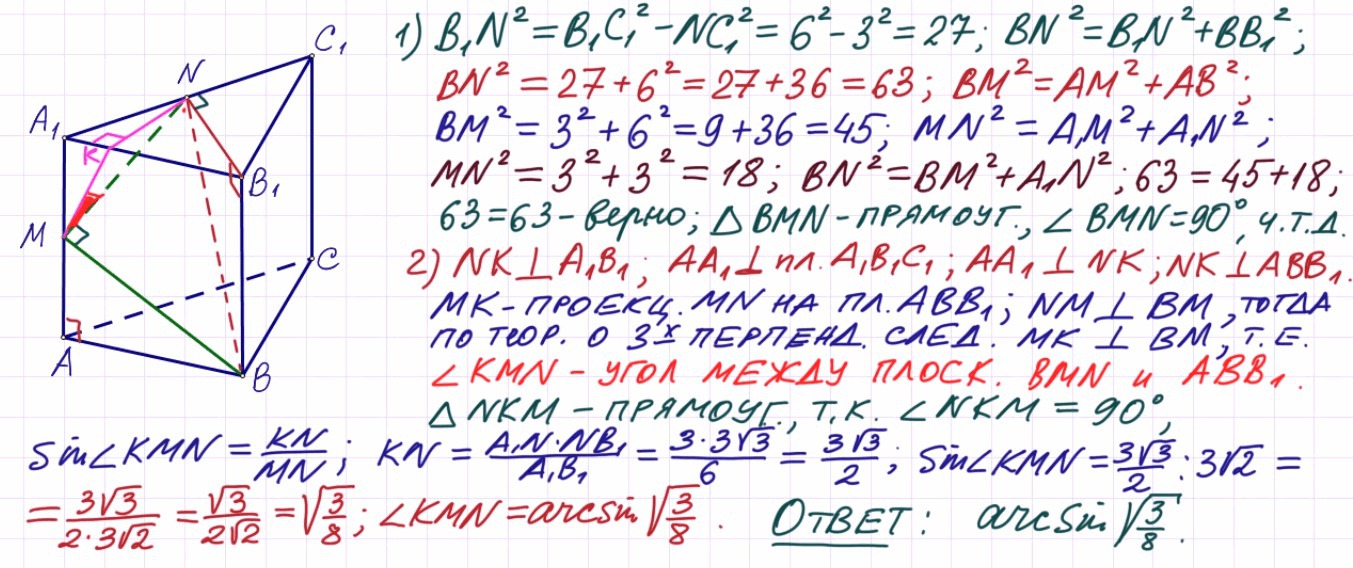 C₁
N
A₁
K
B₁
M
C
A
B
1) B₁N² = B₁C₁² - NC₁² = 6² - 3² = 27; BN² = B₁N² + BB₁²;
BN² = 27 + 6² = 27 + 36 = 63; BM² = AM² + AB²;
BM² = 3² + 6² = 9 + 36 = 45; MN² = A₁M² + A₁N²;
MN² = 3² + 3² = 18; BN² = BM² + A₁N²; 63 = 45 + 18;
63 = 63 - верно; △ BMN - ПРЯМОУГ., ∠ BMN = 90°, ч.т.д.
2) NK ⊥ A₁B₁; AA₁ ⊥ пл. A₁B₁C₁; AA₁ ⊥ NK; NK ⊥ ABB₁.
МК - ПРОЕКЦ. MN НА ПЛ. ABB₁; NM ⊥ BM, ТОГДА
ПО ТЕОР. О 3ˣ ПЕРПЕНД. СЛЕД. МК ⊥ ВМ, Т.Е.
∠ KMN - УГОЛ МЕЖДУ ПЛОСК. BMN и ABB₁.
△ NKM - ПРЯМОУГ., Т.К. ∠ NKM = 90°,
Sin∠KMN = KN/MN; KN = A₁N·NB₁/A₁B₁ = 3·3√3/6 = 3√3/2; Sin∠KMN = 3√3/2 : 3√2 =
= 3√3/2·3√2 = √3/2√2 = √3/8; ∠KMN = arcsin √3/8. ОТВЕТ: arcSin √3/8.